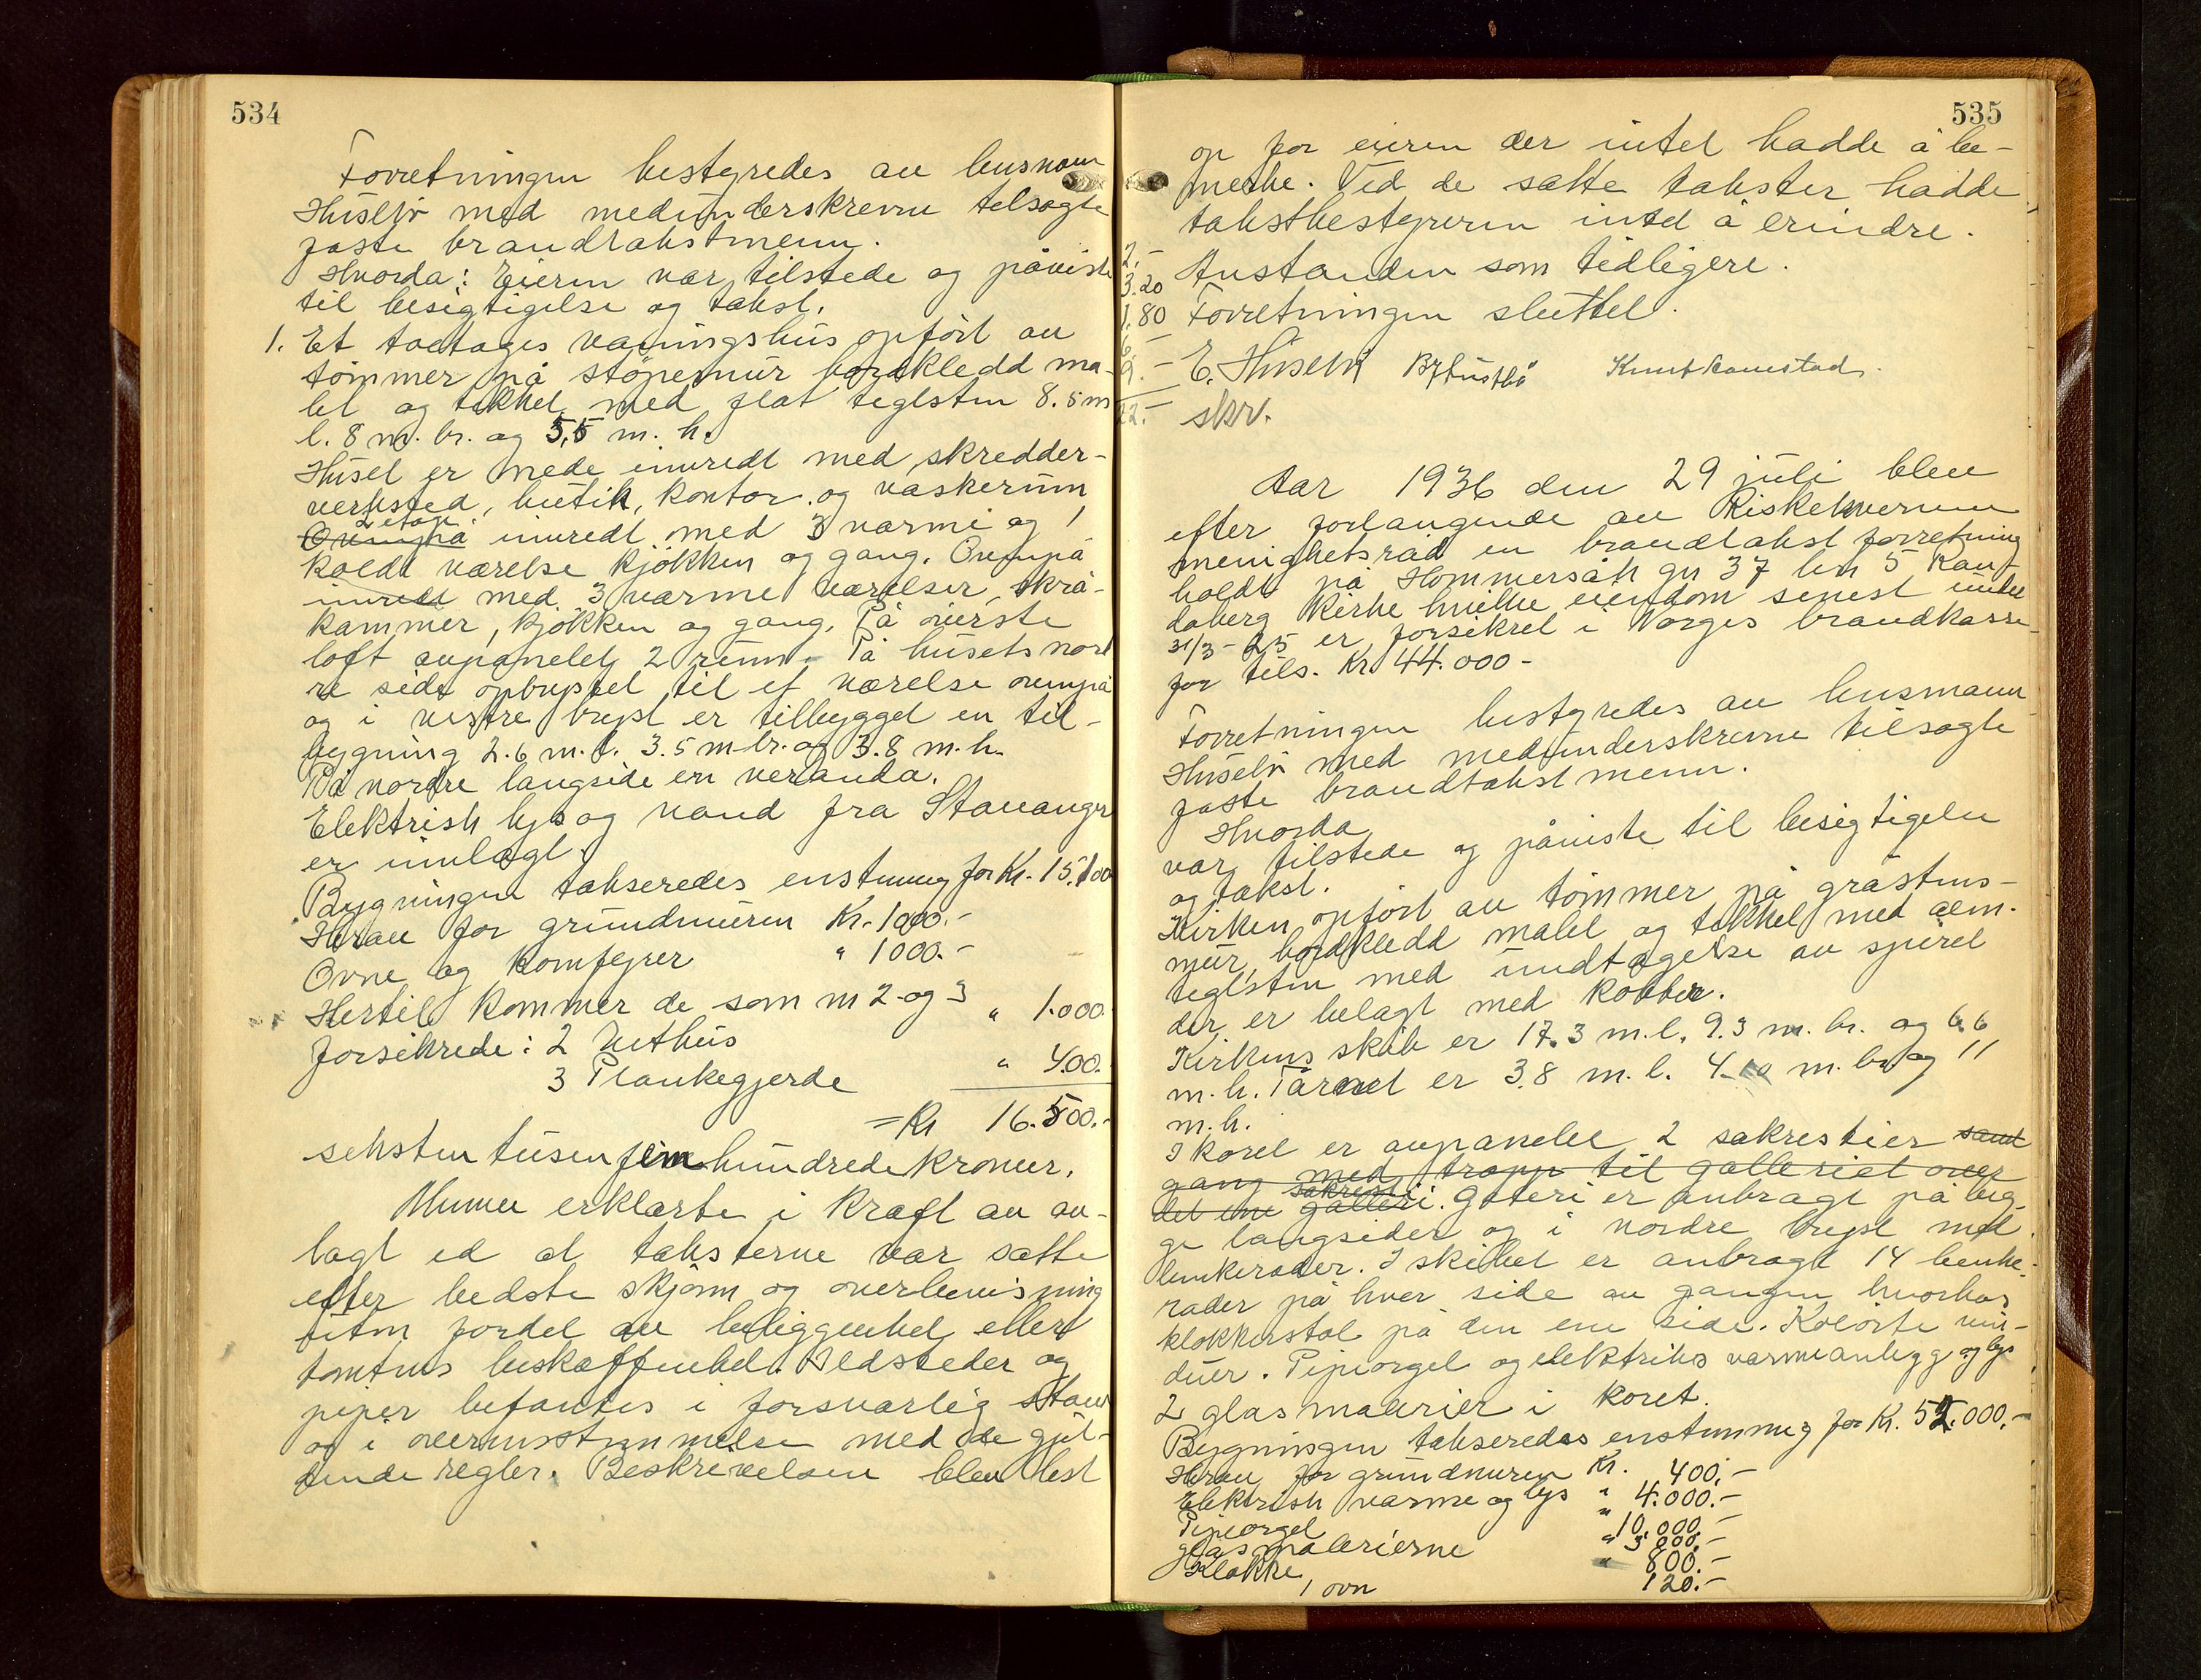 534
Forretningen bestyredes av lensmann
Husebø med medunderskrevne tilsagte
faste brandtakstmenn.
Hvorda: Eieren var tilstede og påviste
til besigtigelse og takst.
1. Et toetages våningshus opført av
tømmer på støpemur bordkledd ma-
let og tekket med flat teglsten 8.5 m
l. 8 m. br. og 5,5 m. h.
Huset er nede innredt med skredder-
verksted, butik, kontor og vaskerum
2 etage
Ovenpå innredt med 3 varme og 1
koldt værelse kjøkken og gang. Ovenpå
innredt med 3 varme værelser, skrå-
kammer, kjøkken og gang. På øverste
loft avpanelet 2 rum. På husets nord
re side opbygget til et værelse ovenpå
og i vestre bryst er tilbygget en til-
bygning 2.6 m. l. 3.5 m br. og 3.8 m. h.
På nordre langside en veranda.
Elektrisk lys og vand fra Stavanger
er innlagt.
Bygningen takseredes enstemmig for Kr. 15.100
Herav for grundmuren Kr. 1000.-
Ovne og komfyrer " 1000.-
Hertil kommer de som m 2 og 3
forsikrede: 2 Uthus " 1.000.
3 Plankegjerde " 400.
= Kr 16.500.-
seksten tusen fem hundrede kroner.
Menn erklærte i kraft av av-
lagt ed at taksterne var satte
efter bedste skjønn og overbevisning
uten fordel av beliggenhet eller
tomtens beskaffenhet. Ildsteder og
piper befantes i forsvarlig stand
og i overensstemmelse med de gjel-
dende regler. Beskrivelsen blev lest
535
op for eieren der intet hadde å be-
merke. Ved de satte takster hadde
takstbestyreren intet å erindre.
2.-
Avstanden som tidligere.
3.20
1.80 Forretningen sluttet.
6.-
9.- E. Husebø Knut Ramstad
22.- skr.
Aar 1936 den 29 juli blev
efter forlangende av Riskekvernen
menighetsråd en brandtakst forretning
holdt på Hommersåk gn 37 bn 5 Ran-
daberg Kirke hvilke eiendom senest under
31/3-25 er forsikret i Norges brandkasse
for tils. Kr 44.000-
Forretningen bestyredes av lensmann
Husebø med medunderskrevne tilsagte
faste brandtakstmenn.
Hvorda
var tilstede og påviste til besigtigelse
og takst.
Kirken opført av tømmer på gråstens-
mur, bordkledd malet og tekket med alm.
teglsten med undtagelse av spiret
der er belagt med kobber.
Kirkens skib er 17.3 m. l. 9.3 m. br. og 6.6
m. h. Tårnet er 3.8 m. l. 4.10 m. br. og 11
m. h.
I koret er avpanelet 2 sakrestier samt
gang med trapp til galleriet over
sakresti
det ene galleri. Galeri er anbragt på beg-
ge langsider og i nordre bryst med
benkerader. I skibet er anbragt 14 benke-
rader på hver side av gangen hvorhos
klokkerstol på den ene side. Kolørte vin-
duer. Pipeorgel og elektriks varmeanlegg og lys
2 glasmalerier i koret.
Bygningen takseredes enstemmig for Kr. 52.000.-
Herav for grundmuren Kr. 400.-
Elektrisk varme og lys " 4.000.-
Pipeorgel " 10.000.-
glasmalerierne " 3.000.-
Klokke " 800.-
1 ovn 120.-